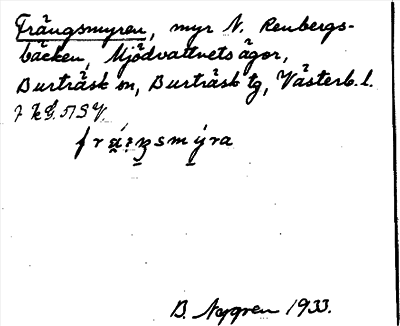 Frängsmyren, myr N. Renbergs-
bäcken, Mjödvattnets ägor,
Burträsk sn, Burträsk tg, Västerb. l.
frä́:ŋsmýra
B. Nygren 1933.